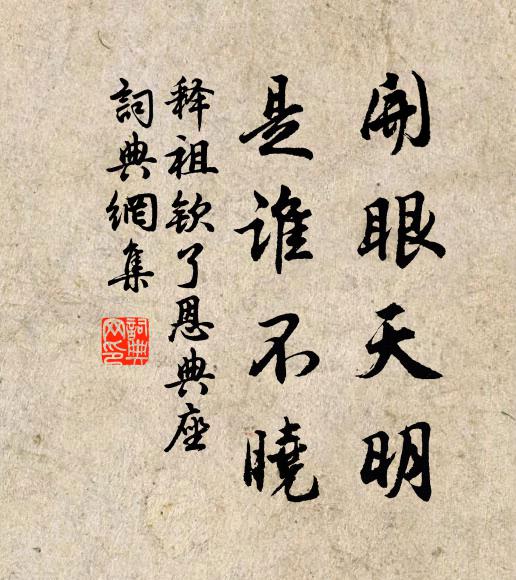 開眼天明
是誰不曉
释祖钦了恩典座
詞典網集
詞典
网印